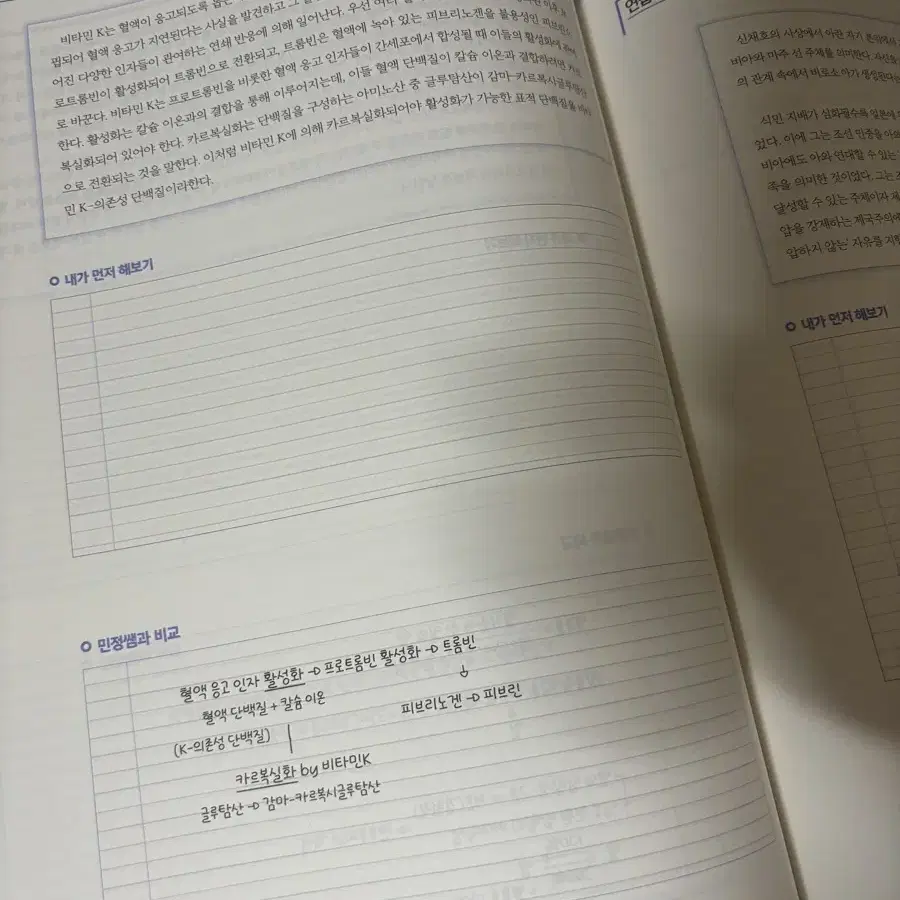 비타민 K는 혈액이 응고되도록
핍되어 혈액 응고가 지연된다는 사실을 발견하고
어진 다양한 인자들이 관여하는 연쇄 반응에 의해 일어난다. 우선 여러
로트롬빈이 활성화되어 트롬빈으로 전환되고, 트롬빈은 혈액에 녹아 있는 피브리노겐을 불용성인 피브린으
로 바꾼다. 비타민 K는 프로트롬빈을 비롯한 혈액 응고 인자들이 간세포에서 합성될 때 이들의 활성화에 관여
한다. 활성화는 칼슘 이온과의 결합을 통해 이루어지는데, 이들 혈액 단백질이 칼슘 이온과 결합하려면 카르
복실화되어 있어야 한다. 카르복실화는 단백질을 구성하는 아미노산 중 글루탐산이 감마-카르복시글루탐산
으로 전환되는 것을 말한다. 이처럼 비타민 K에 의해 카르복실화되어야 활성화가 가능한 표적 단백질을 비타
민 K-의존성 단백질이라 한다.
내가 먼저 해보기
민정쌤과 비교
혈액 응고 인자 활성화 → 프로트롬빈 활성화 → 트롬빈
↓
혈액 단백질 + 칼슘 이온
피브리노겐 → 피브린
(K-의존성 단백질)
카르복실화 by 비타민K
글루탐산 → 감마-카르복시글루탐산
신채호의 사상에서 아란 자기 본위에서
비아와 마주 선 주체를 의미한다. 자신을
의 관계 속에서 비로소 아가 생성된다는
식민 지배가 심화될수록 일본에
었다. 이에 그는 조선 민중을 아의
비아에도 아와 연대할 수 있는
족을 의미한 것이었다. 그는 조
달성할 수 있는 주체이자 제
압을 강제하는 제국주의에
압하지 않는' 자유를 지향
내가 먼저 해보기